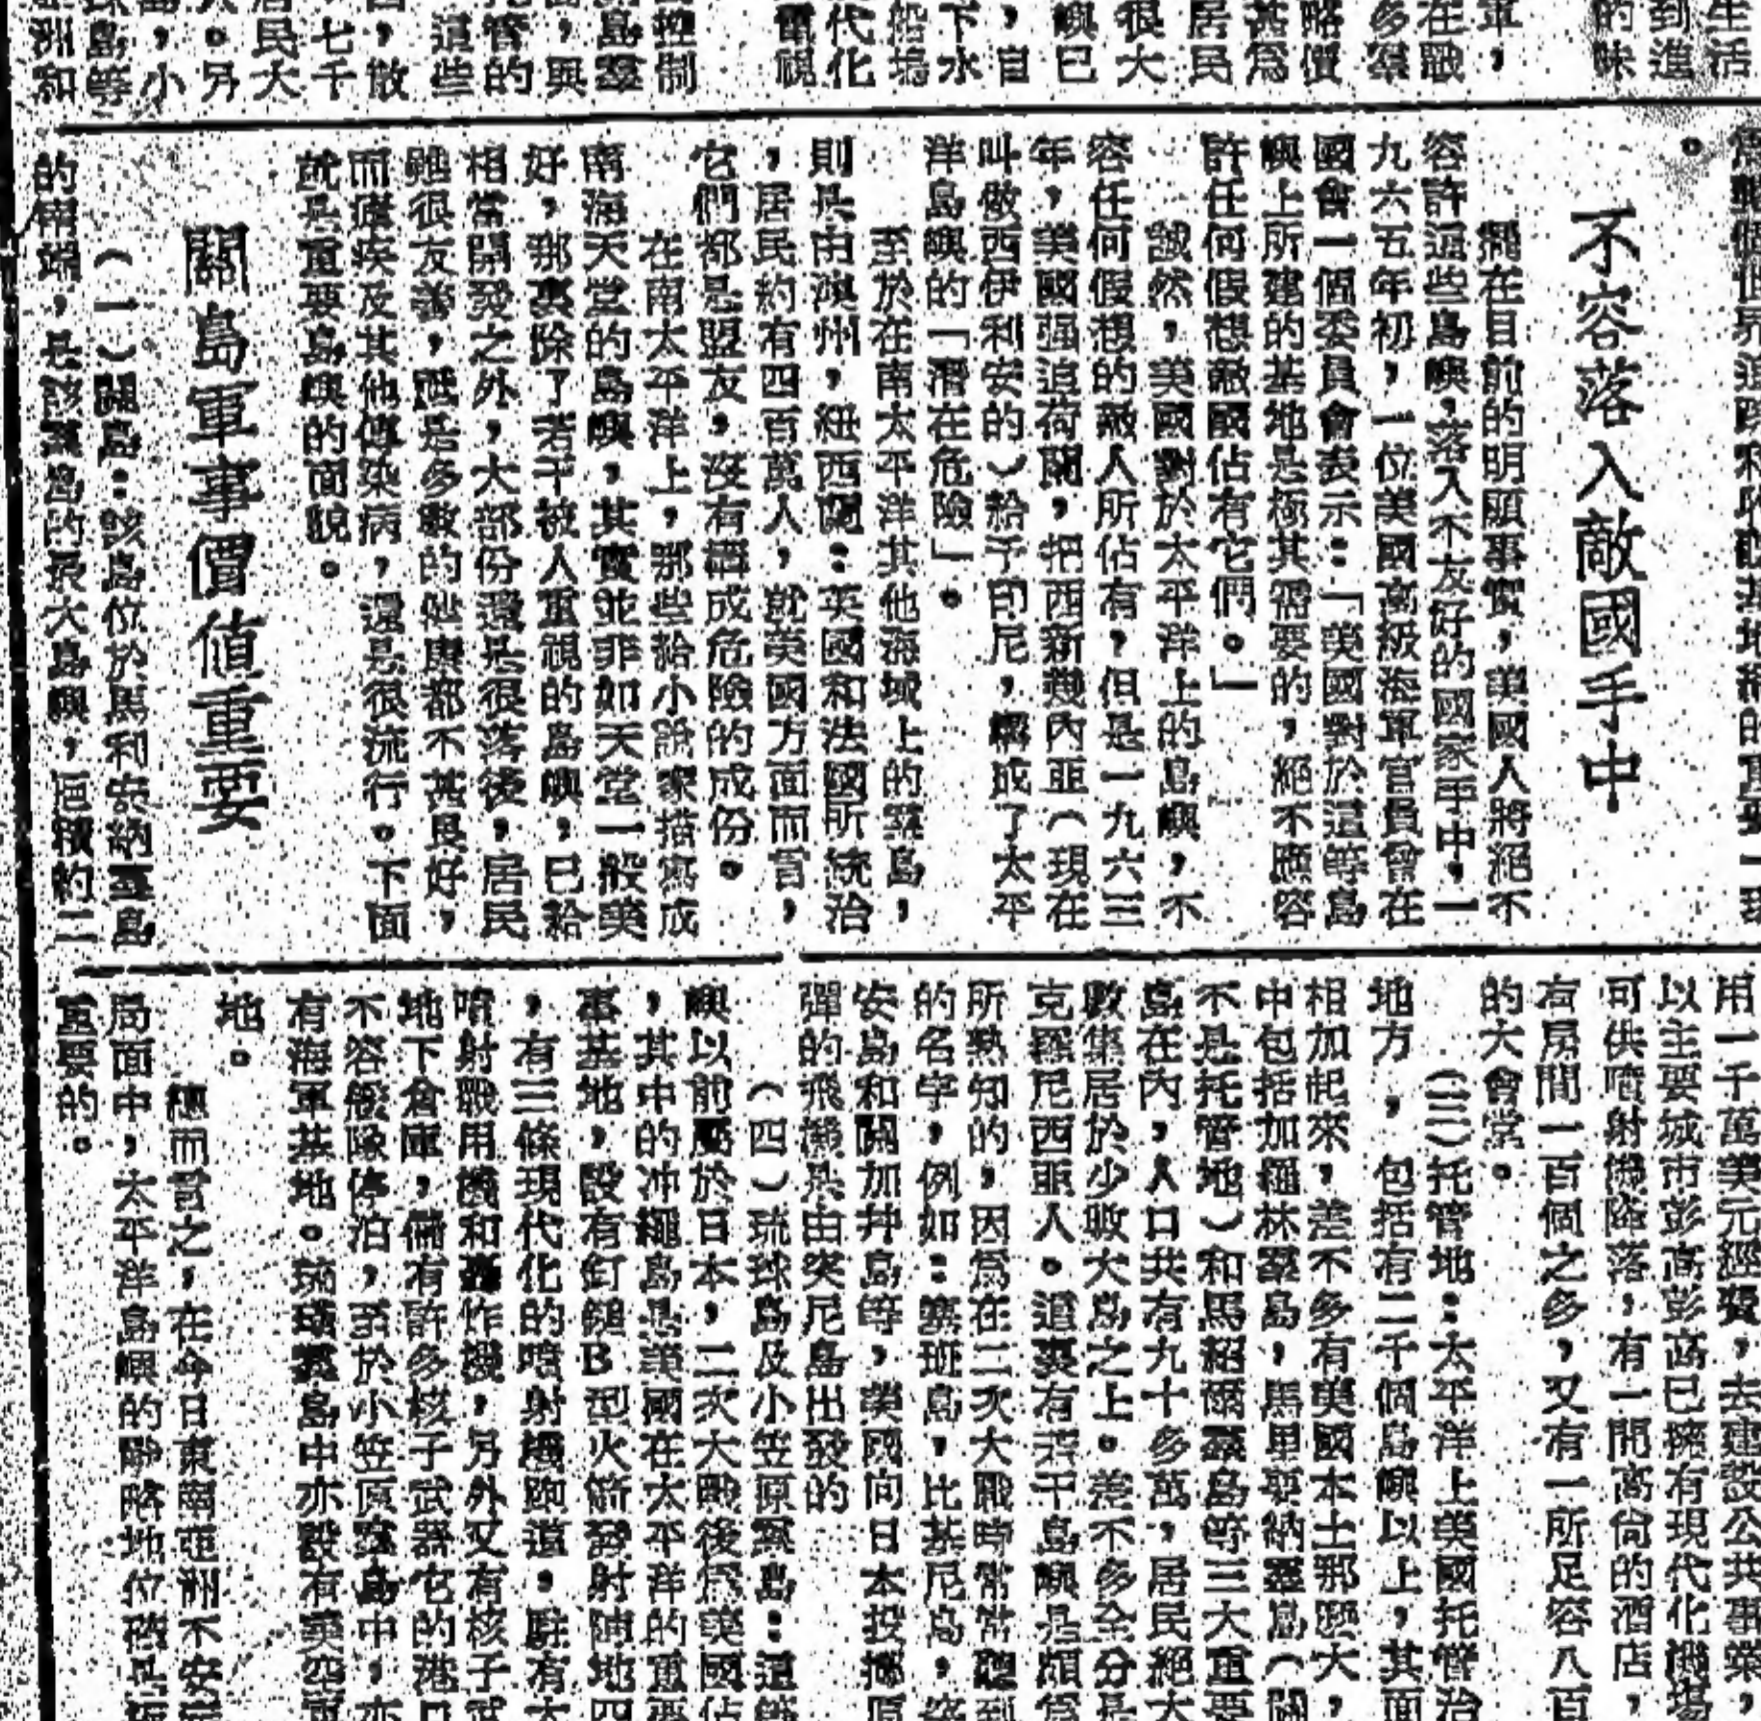 軍，
在戰
多羣
略價
甚爲
居民
很大
嶼已
，自
下水
船塢
代化
電視
控制
島羣
，與
托管的
這些
，散
七千
居民大
。另
，小
島等
洲和
不容落入敵國手中
擺在目前的明顯事實，美國人將絕不
容許這些島嶼，落入不友好的國家手中，一
九六五年初，一位美國高級海軍官員曾在
國會一個委員會表示：「美國對於這等島
嶼上所建的基地是極其需要的，絕不應容
許任何假想敵國佔有它們。」
誠然，美國對於太平洋上的島嶼，不
容任何假想的敵人所佔有，但是一九六三
年，美國强迫荷蘭，把西新幾內亞（現在
叫做西伊利安的）給予印尼，構成了太平
洋島嶼的「潛在危險」。
至於在南太平洋其他海域上的羣島，
則是由澳州，紐西蘭：英國和法國所統治
，居民約有四百萬人，就英國方面而言，
它們都是盟友，沒有構成危險的成份。
在南太平洋上，那些給小說家描寫成
南海天堂的島嶼，其實並非如天堂一般美
好，那裏除了若干被人重視的島嶼，已給
相當開發之外，大部份還是很落後，居民
雖很友善，但是多數的健康都不甚良好，
而瘧疾及其他傳染病，還是很流行。下面
就是重要島嶼的面貌。
關島軍事價值重要
（一）關島：該島位於馬利安納羣島
的南端，是該羣島的最大島嶼，面積約二
用一千萬美元經費，去建設公共事業，
以主要城市彭高彭高已擁有現代化機場
可供噴射機降落，有一間高尙的酒店，
有房間一百個之多，又有一所足容八百
的大會堂。
（三）托管地：太平洋上美國托管治
地方，包括有二千個島嶼以上，其面
相加起來，差不多有美國本土那麽大，
中包括加羅林羣島，馬里亞納羣島（關
不是托管地）和馬紹爾羣島等三大重要
島在內，人口共有九十多萬，居民絕大
數集居於少數大島之上。差不多全分是
克羅尼西亞人。這裏有若干島嶼是頗爲
所熟知的，因爲在二次大戰時常常聽到
的名字，例如：塞班島，比基尼島，
安島和關加井島等，美國向日本投擲原
彈的飛機是由突尼島出發的
（四）琉球島及小笠原羣島：這
嶼以前屬於日本，二次大戰後爲美國佔
，其中的冲繩島是美國在太平洋的重要
事基地，設有釘鎚B型火箭發射陣地四
，有三條現代化的噴射機跑道，駐有大
噴射戰用機和轟炸機，另外又有核子武
地下倉庫，儲有許多核子武器它的港口
不容艦隊停泊，至於小笠原羣島中，亦
有海軍基地。琉球羣島中亦設有美空軍
地。
總而言之，在今日東南亞洲不安
局面中，太平洋島嶼的戰略地位確是
重要的。